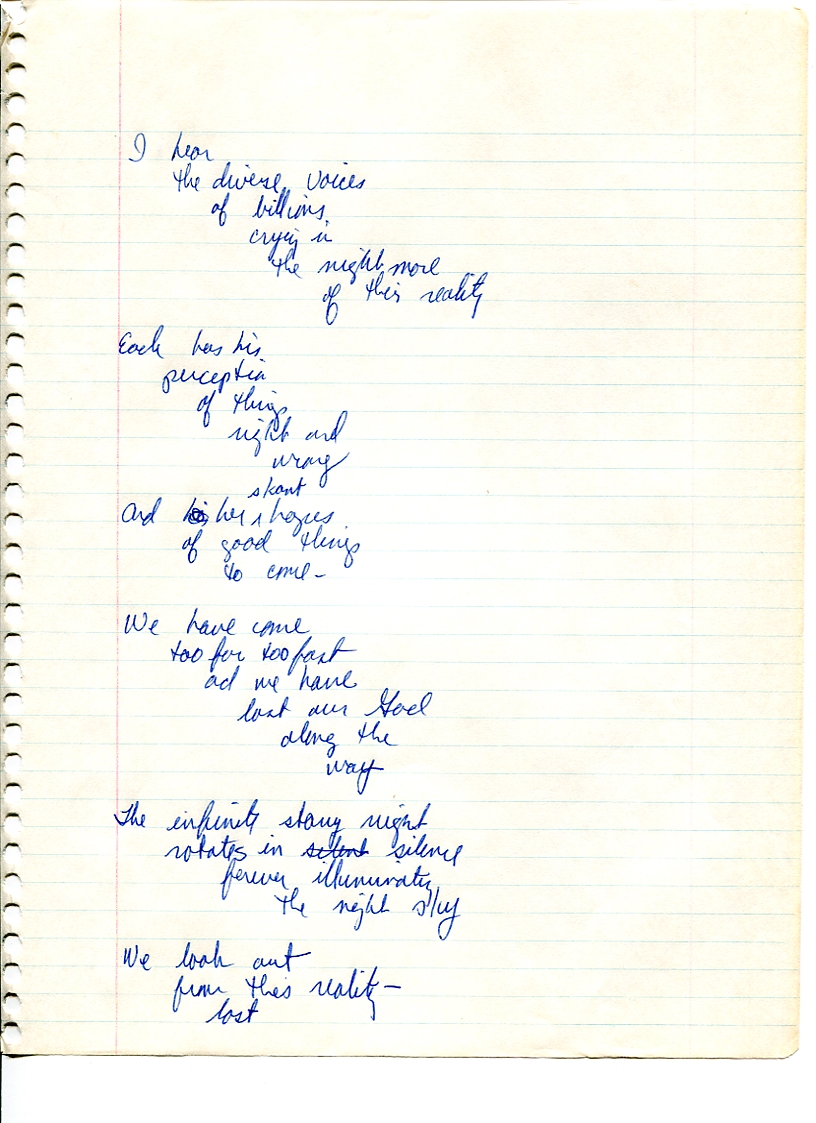 I hear
the diverse voices
of billions
crying in
the nightmare
of this reality
Each has his
perception
of things
right and
wrong
skant
And his her hopes
of good things
to come—
We have come
too far too fast
and we have
lost our God
along the
way
The infinite starry night
rotates in silent silence
forever illuminating
the night sky
We look out
from this reality—
lost